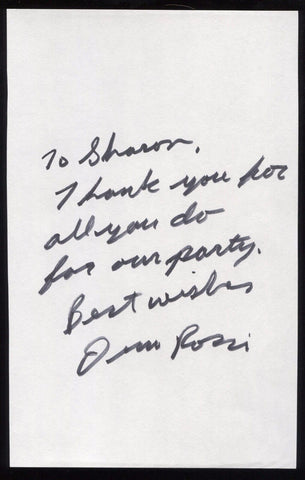 To Sharon,
Thank you for
all you do
for our party.
Best wishes
Dino Rossi